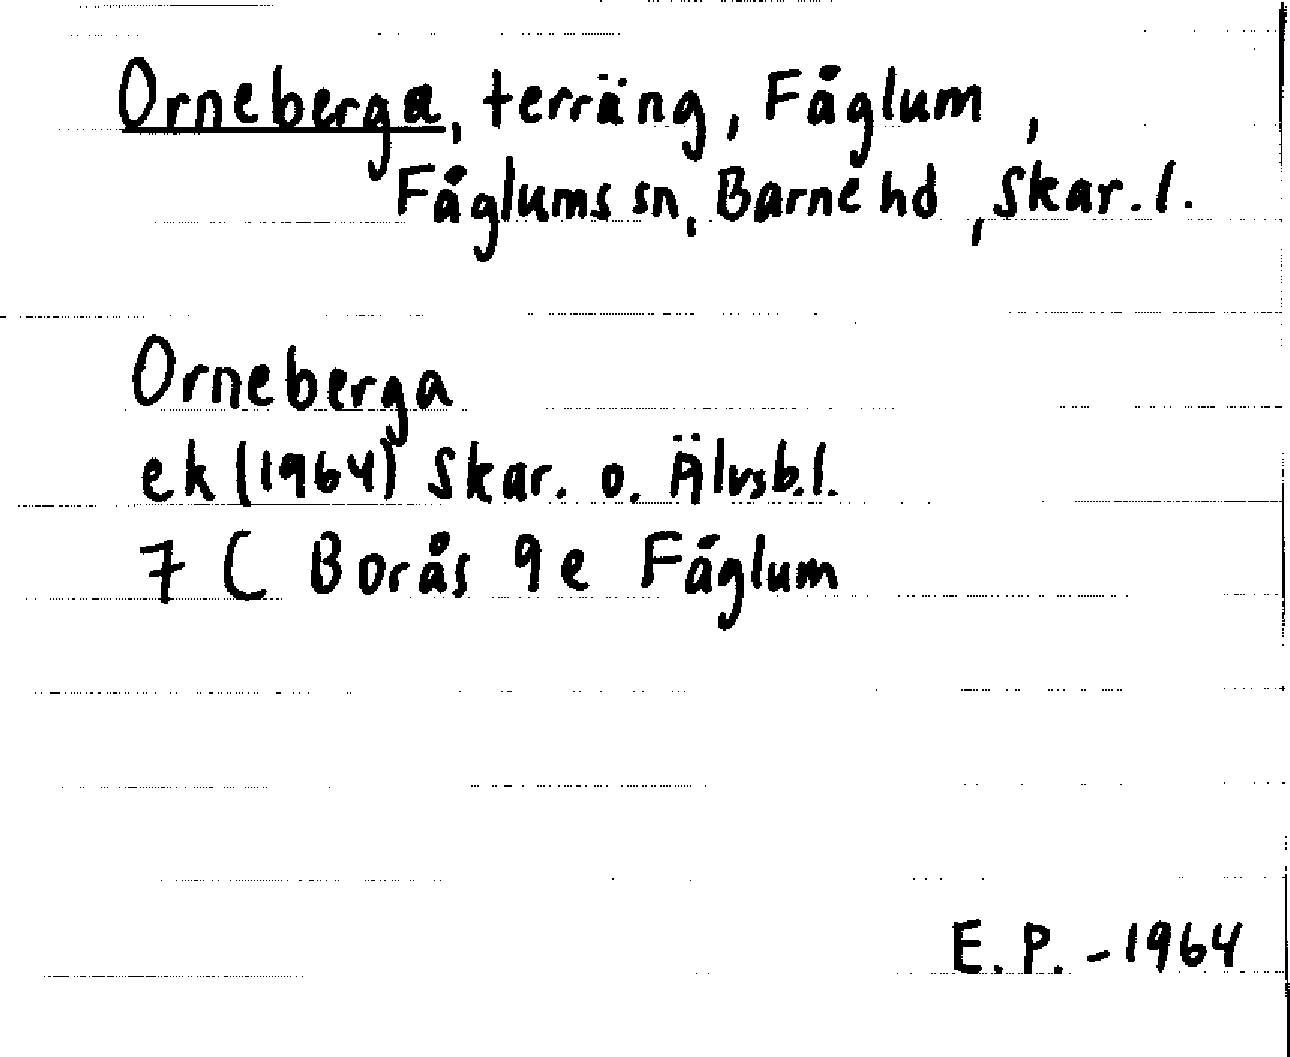 Orneberga, terräng, Fåglum,
Fåglums sn, Barne hd, Skar. l.
Orneberga
ek (1964) Skar. o. Älvsb. l.
7 C Borås 9 e Fåglum
E. P. - 1964